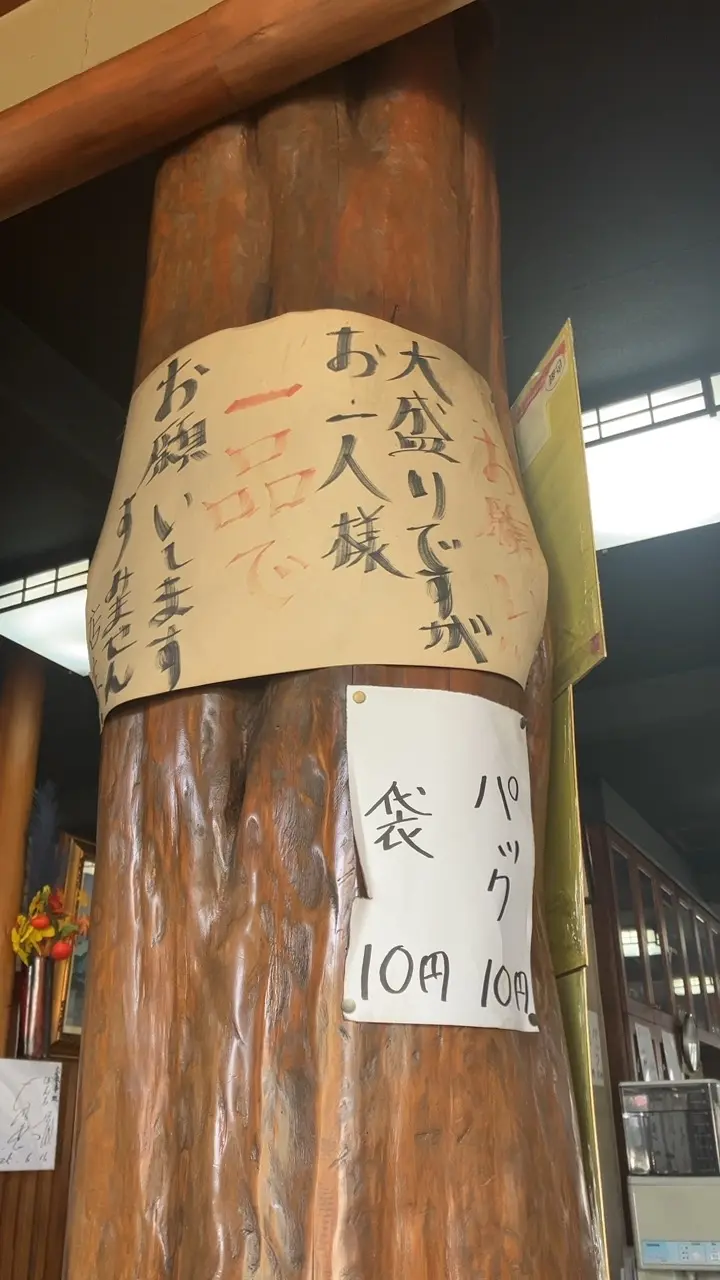 お願い
大盛りですが
お一人様
一品で
お願いします
すみません
パック 10円
袋 10円